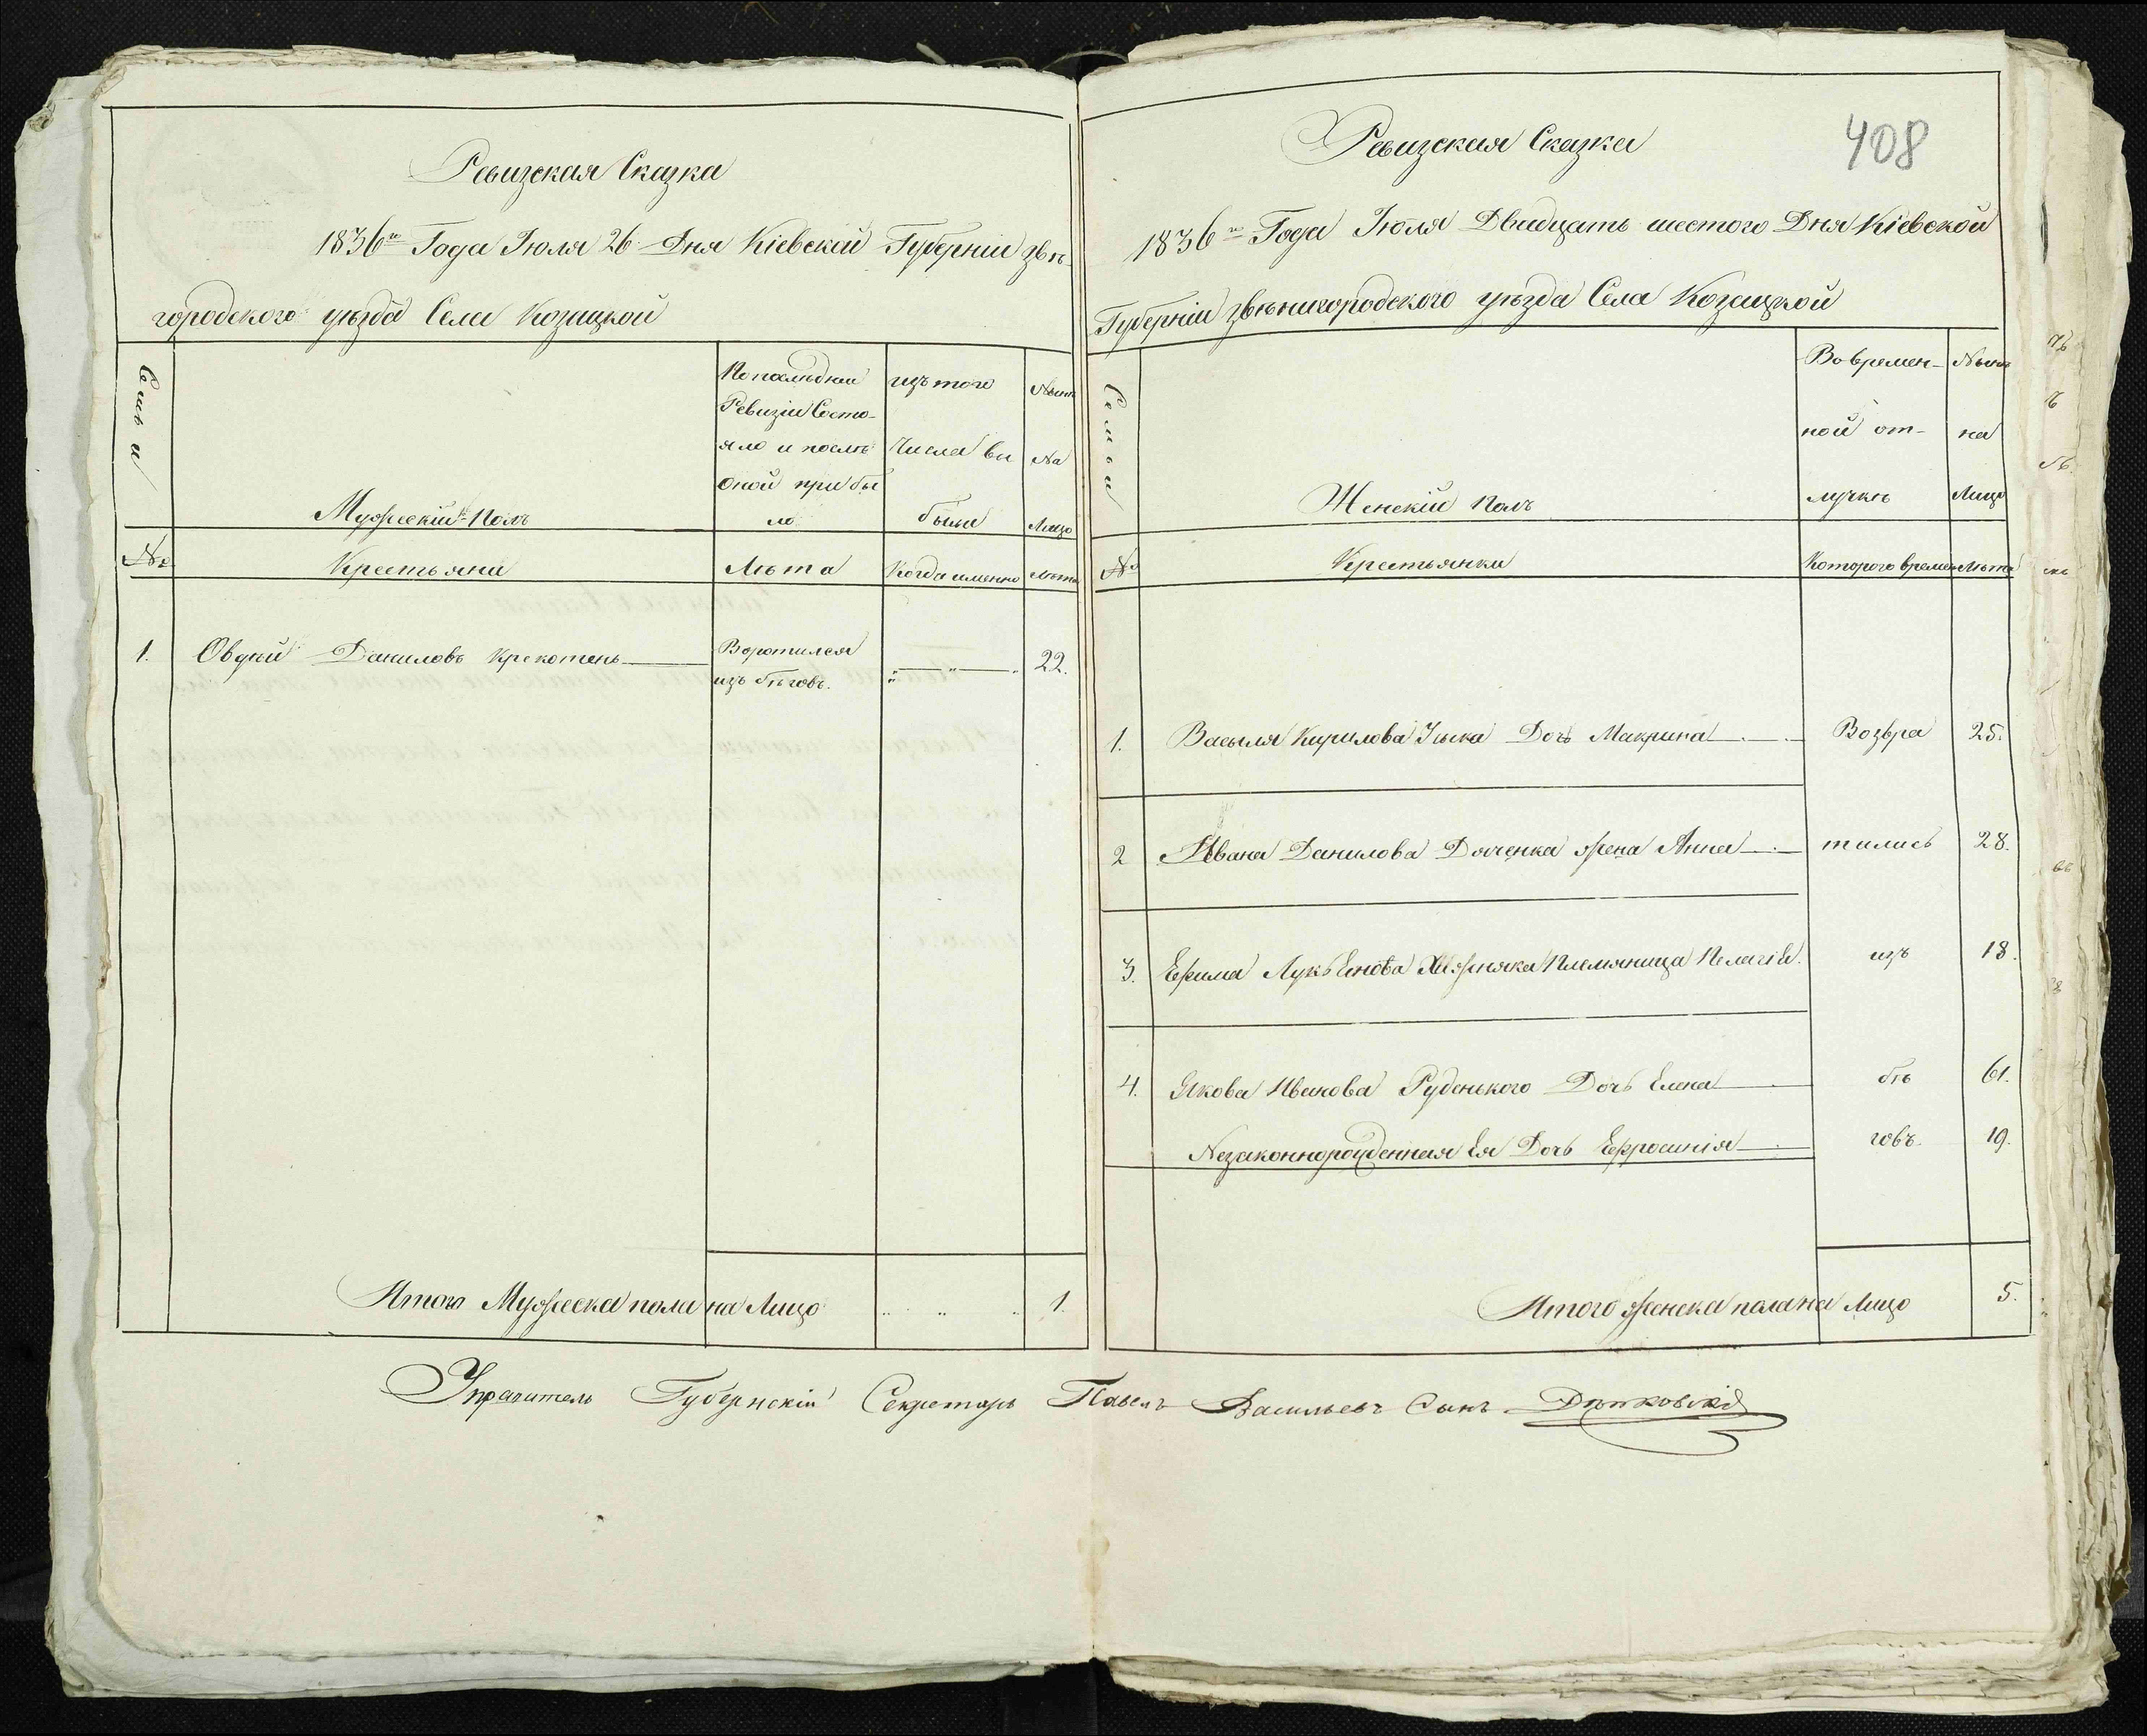 Ревизская Сказка
1836го Года Июля 26 Дня Кіевской Губерніи Звѣ-
городского уѣзда Села Козицкой
Семьи
Мужескій Полъ
По последней
Ревизіи Состо-
яло и послѣ
оной прибы
ло
изъ того
Числа вы
было
Нынѣ
на
Лицо
№
Крестьяне
Лѣта
Когда именно
Лѣта
1.
Овдѣй Даниловъ Крекотень
Воротился
изъ бѣговъ.
22.
Итого Мужеска пола на Лицо
1.
408
Ревизская Сказка
1836го Года Июля Двадцать шестого Дня Кіевской
Губерніи Звѣнигородского уѣзда Села Козицкой
Семьи
Женскій Полъ
Во времен-
ной от-
лучкѣ
Нынѣ
на
Лицо
№
Крестьянки
Которого времени
Лѣта
1. Василя Кирилова Дочь Макрина Возвра 25.
2 Ивана Данилова Дяченка жена Анна тились 28.
3. Ефима Племяница Пелагія изъ 18.
4. Якова Иванова Руденького Дочь Елена бѣ 61.
Незаконнорожденная Ея Дочь Ефросинія говъ. 19.
Итого женска пола на Лицо
5.
Губернскій Секретарь Павелъ Васильевъ Сынъ